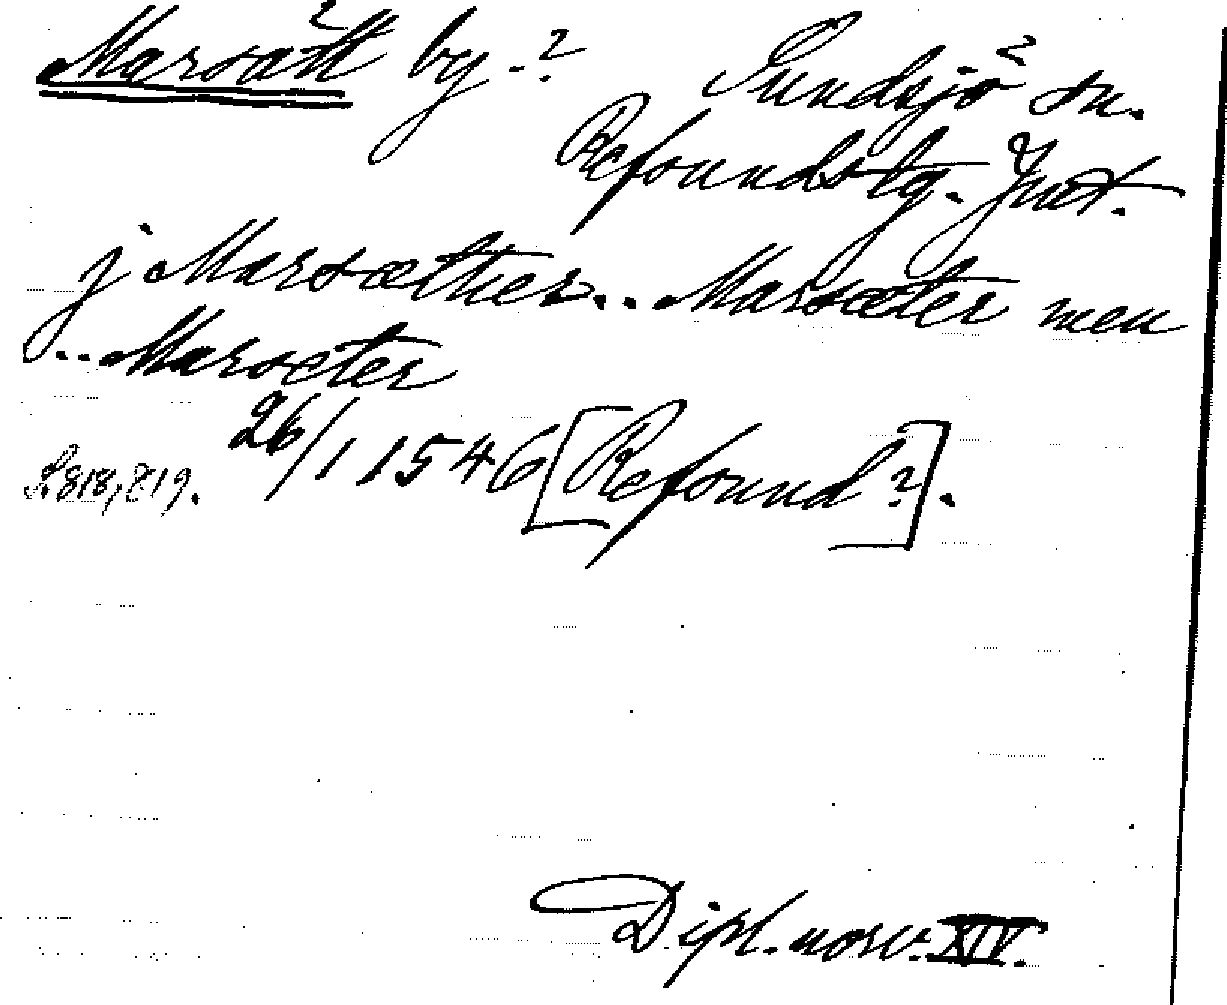 Marsätt by.? Sundsjö sn.
Refsunds tg. Jmt.
j Marsæther... Marsæter men
... Marseter
26/1 1546 [Refsund?].
S. 818, 819.
Dipl. norv. XIV.